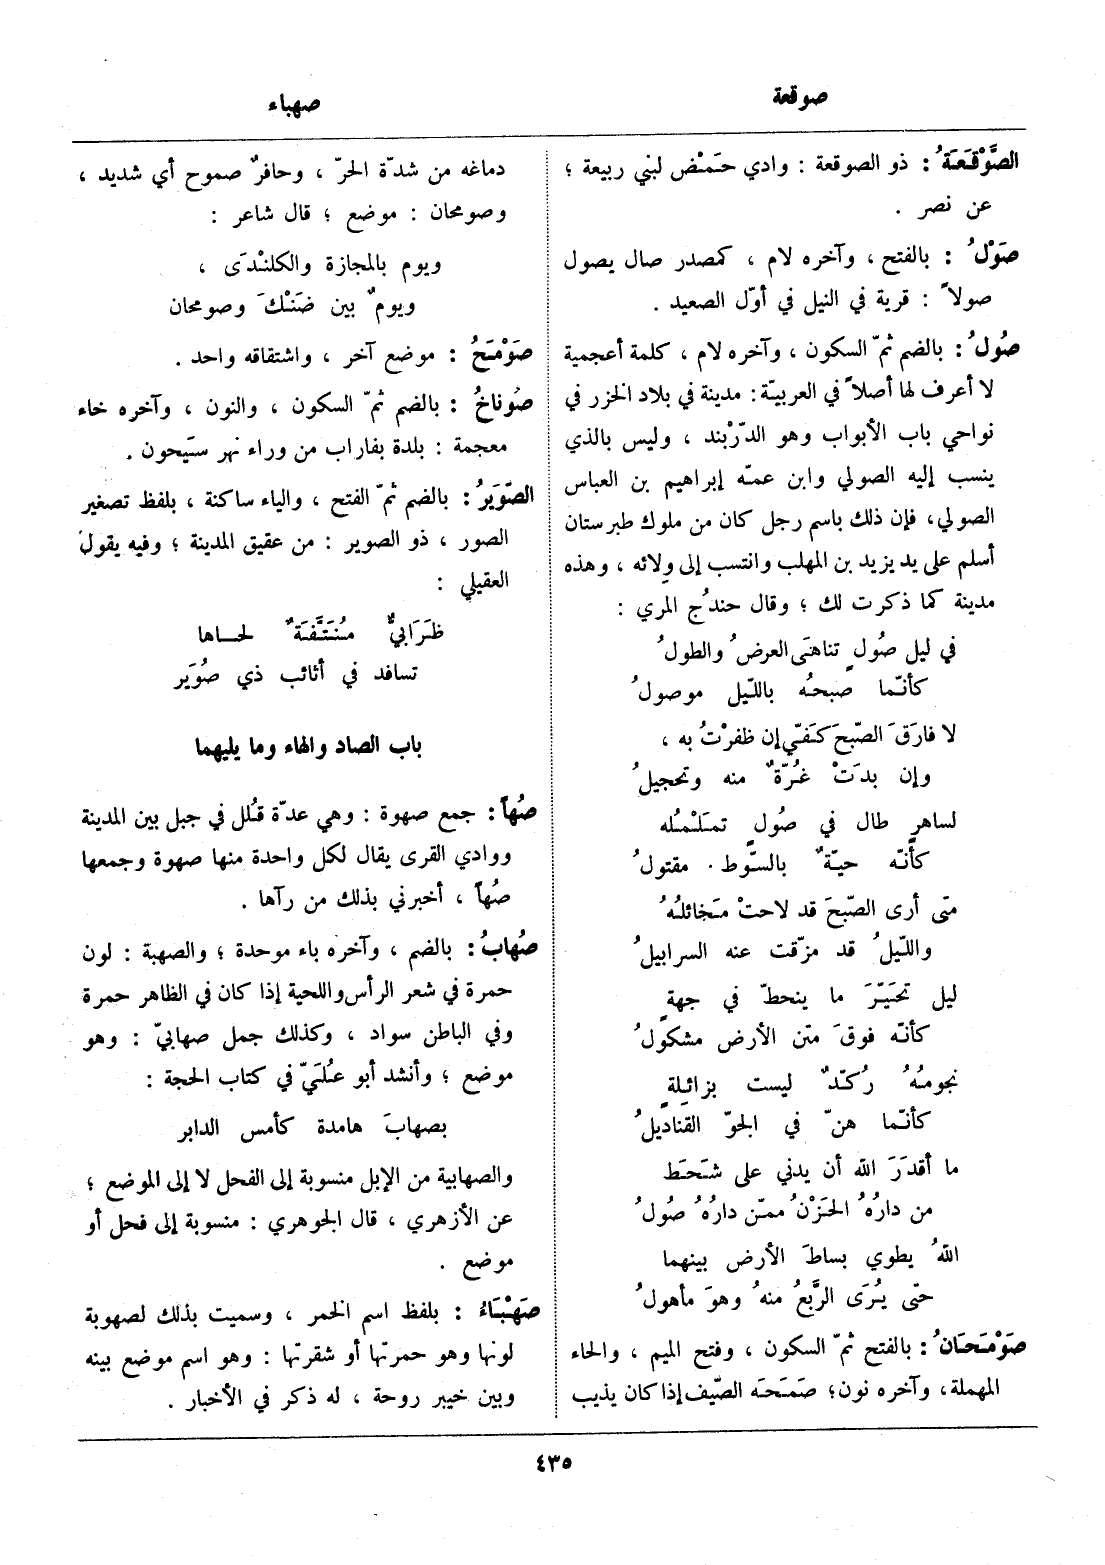 صوقعة
صهباء
الصَّوْقَعَةُ : ذو الصوقعة : وادي حَمْض لبني ربيعة ؛
عن نصر .
صَوْلُ : بالفتح ، وآخره لام ، كمصدر صال يصول
صولاً : قرية في النيل في أوّل الصعيد .
صُولُ : بالضم ثمّ السكون ، وآخره لام ، كلمة أعجمية
لا أعرف لها أصلاً في العربيّة : مدينة في بلاد الخزر في
نواحي باب الأبواب وهو الدّرْبند ، وليس بالذي
ينسب إليه الصولي وابن عمّه إبراهيم بن العباس
الصولي ، فإن ذلك باسم رجل كان من ملوك طبرستان
أسلم على يد يزيد بن المهلب وانتسب إلى ولائه ، وهذه
مدينة كما ذكرت لك ؛ وقال حندُج المري :
في ليل صُولٍ تناهَى العرضُ والطولُ
كأنّما صبحُه باللّيل موصولُ
لا فارَقَ الصّبحَ كَفّي إن ظفرْتُ به ،
وإن بدَتْ غُرّةٌ منه وتحجيلُ
لساهرٍ طال في صُولٍ تمَلْمُله
كأنّه حيّةٌ بالسّوط مقتولُ
متى أرى الصّبحَ قد لاحتْ مَخائلُهُ
واللّيلُ قد مزّقت عنه السرابيلُ
ليل تحَيّرَ ما ينحطّ في جهةٍ
كأنّه فوقَ متن الأرض مشكولُ
نجومُهُ رُكّدٌ ليست بزائلةٍ
كأنّما هنّ في الجوّ القناديلُ
ما أقدَرَ الله أن يدني على شَحَطٍ
من دارُهُ الحَزْنُ ممّن دارُهُ صُولُ
اللهُ يطوي بساطَ الأرض بينهما
حتّى يُرَى الرَّبعُ منهُ وهوَ مأهولُ
صَوْمَحَانُ : بالفتح ثمّ السكون ، وفتح الميم ، والحاء
المهملة ، وآخره نون ؛ صَمَحَه الصّيف إذا كان يذيب
دماغه من شدّة الحرّ ، وحافرٌ صموح أي شديد ،
وصومحان : موضع ؛ قال شاعر :
ويوم بالمجازة والكلَنْدَى ،
ويومٌ بين ضَنْكَ وصومحان
صَوْمَحُ : موضع آخر ، واشتقاقه واحد .
صُوناخُ : بالضم ثمّ السكون ، والنون ، وآخره خاء
معجمة : بلدة بفاراب من وراء نهر سَيحون .
الصّوَيرُ : بالضم ثمّ الفتح ، والياء ساكنة ، بلفظ تصغير
الصور ، ذو الصوير : من عقيق المدينة ؛ وفيه يقول
العقيلي :
ظَرَابيٌّ مُنَتَّفَةٌ لحاها
تسافد في أثائب ذي صُوَير
باب الصاد والهاء وما يليهما
صُهاً : جمع صهوة : وهي عدّة قُلل في جبل بين المدينة
ووادي القرى يقال لكل واحدة منها صهوة وجمعها
صُهاً ، أخبرني بذلك من رآها .
صُهابُ : بالضم ، وآخره باء موحدة ؛ والصهبة : لون
حمرة في شعر الرأس واللحية إذا كان في الظاهر حمرة
وفي الباطن سواد ، وكذلك جمل صهابيّ : وهو
موضع ؛ وأنشد أبو عُلَيّ في كتاب الحجة :
بصهابَ هامدة كأمس الدابر
والصهابية من الإبل منسوبة إلى الفحل لا إلى الموضع ؛
عن الأزهري ، قال الجوهري : منسوبة إلى فحل أو
موضع .
صَهْبَاءُ : بلفظ اسم الخمر ، وسميت بذلك لصهوبة
لونها وهو حمرتها أو شقرتها : وهو اسم موضع بينه
وبين خيبر روحة ، له ذكر في الأخبار .
٤٣٥